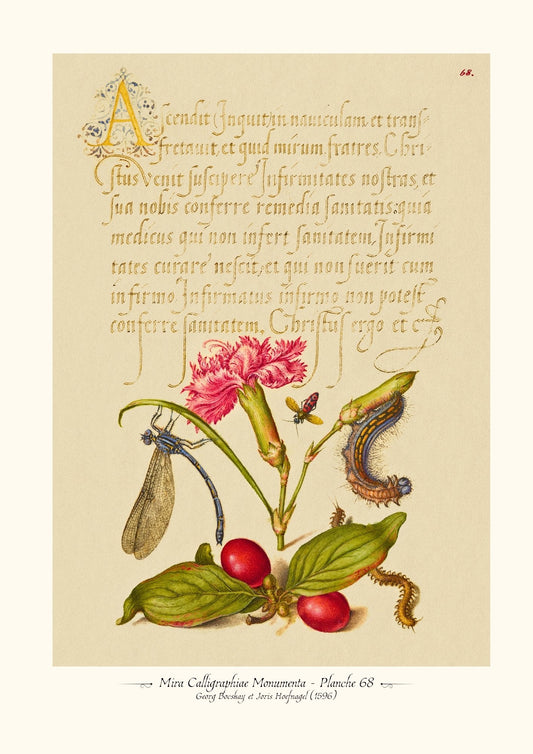 68.
Ascendit Inquit, in nauiculam et trans-
fretauit, et quid mirum fratres. Chri-
stus venit suscipere Infirmitates nostras, et
sua nobis conferre remedia sanitatis: quia
medicus qui non infert sanitatem, Infirmi
tates curare nescit, et qui non fuerit cum
infirmo Infirmatus infirmo non potest
conferre sanitatem, Christus ergo et c
Mira Calligraphiae Monumenta - Planche 68
Georg Bocskay et Joris Hoefnagel (1596)